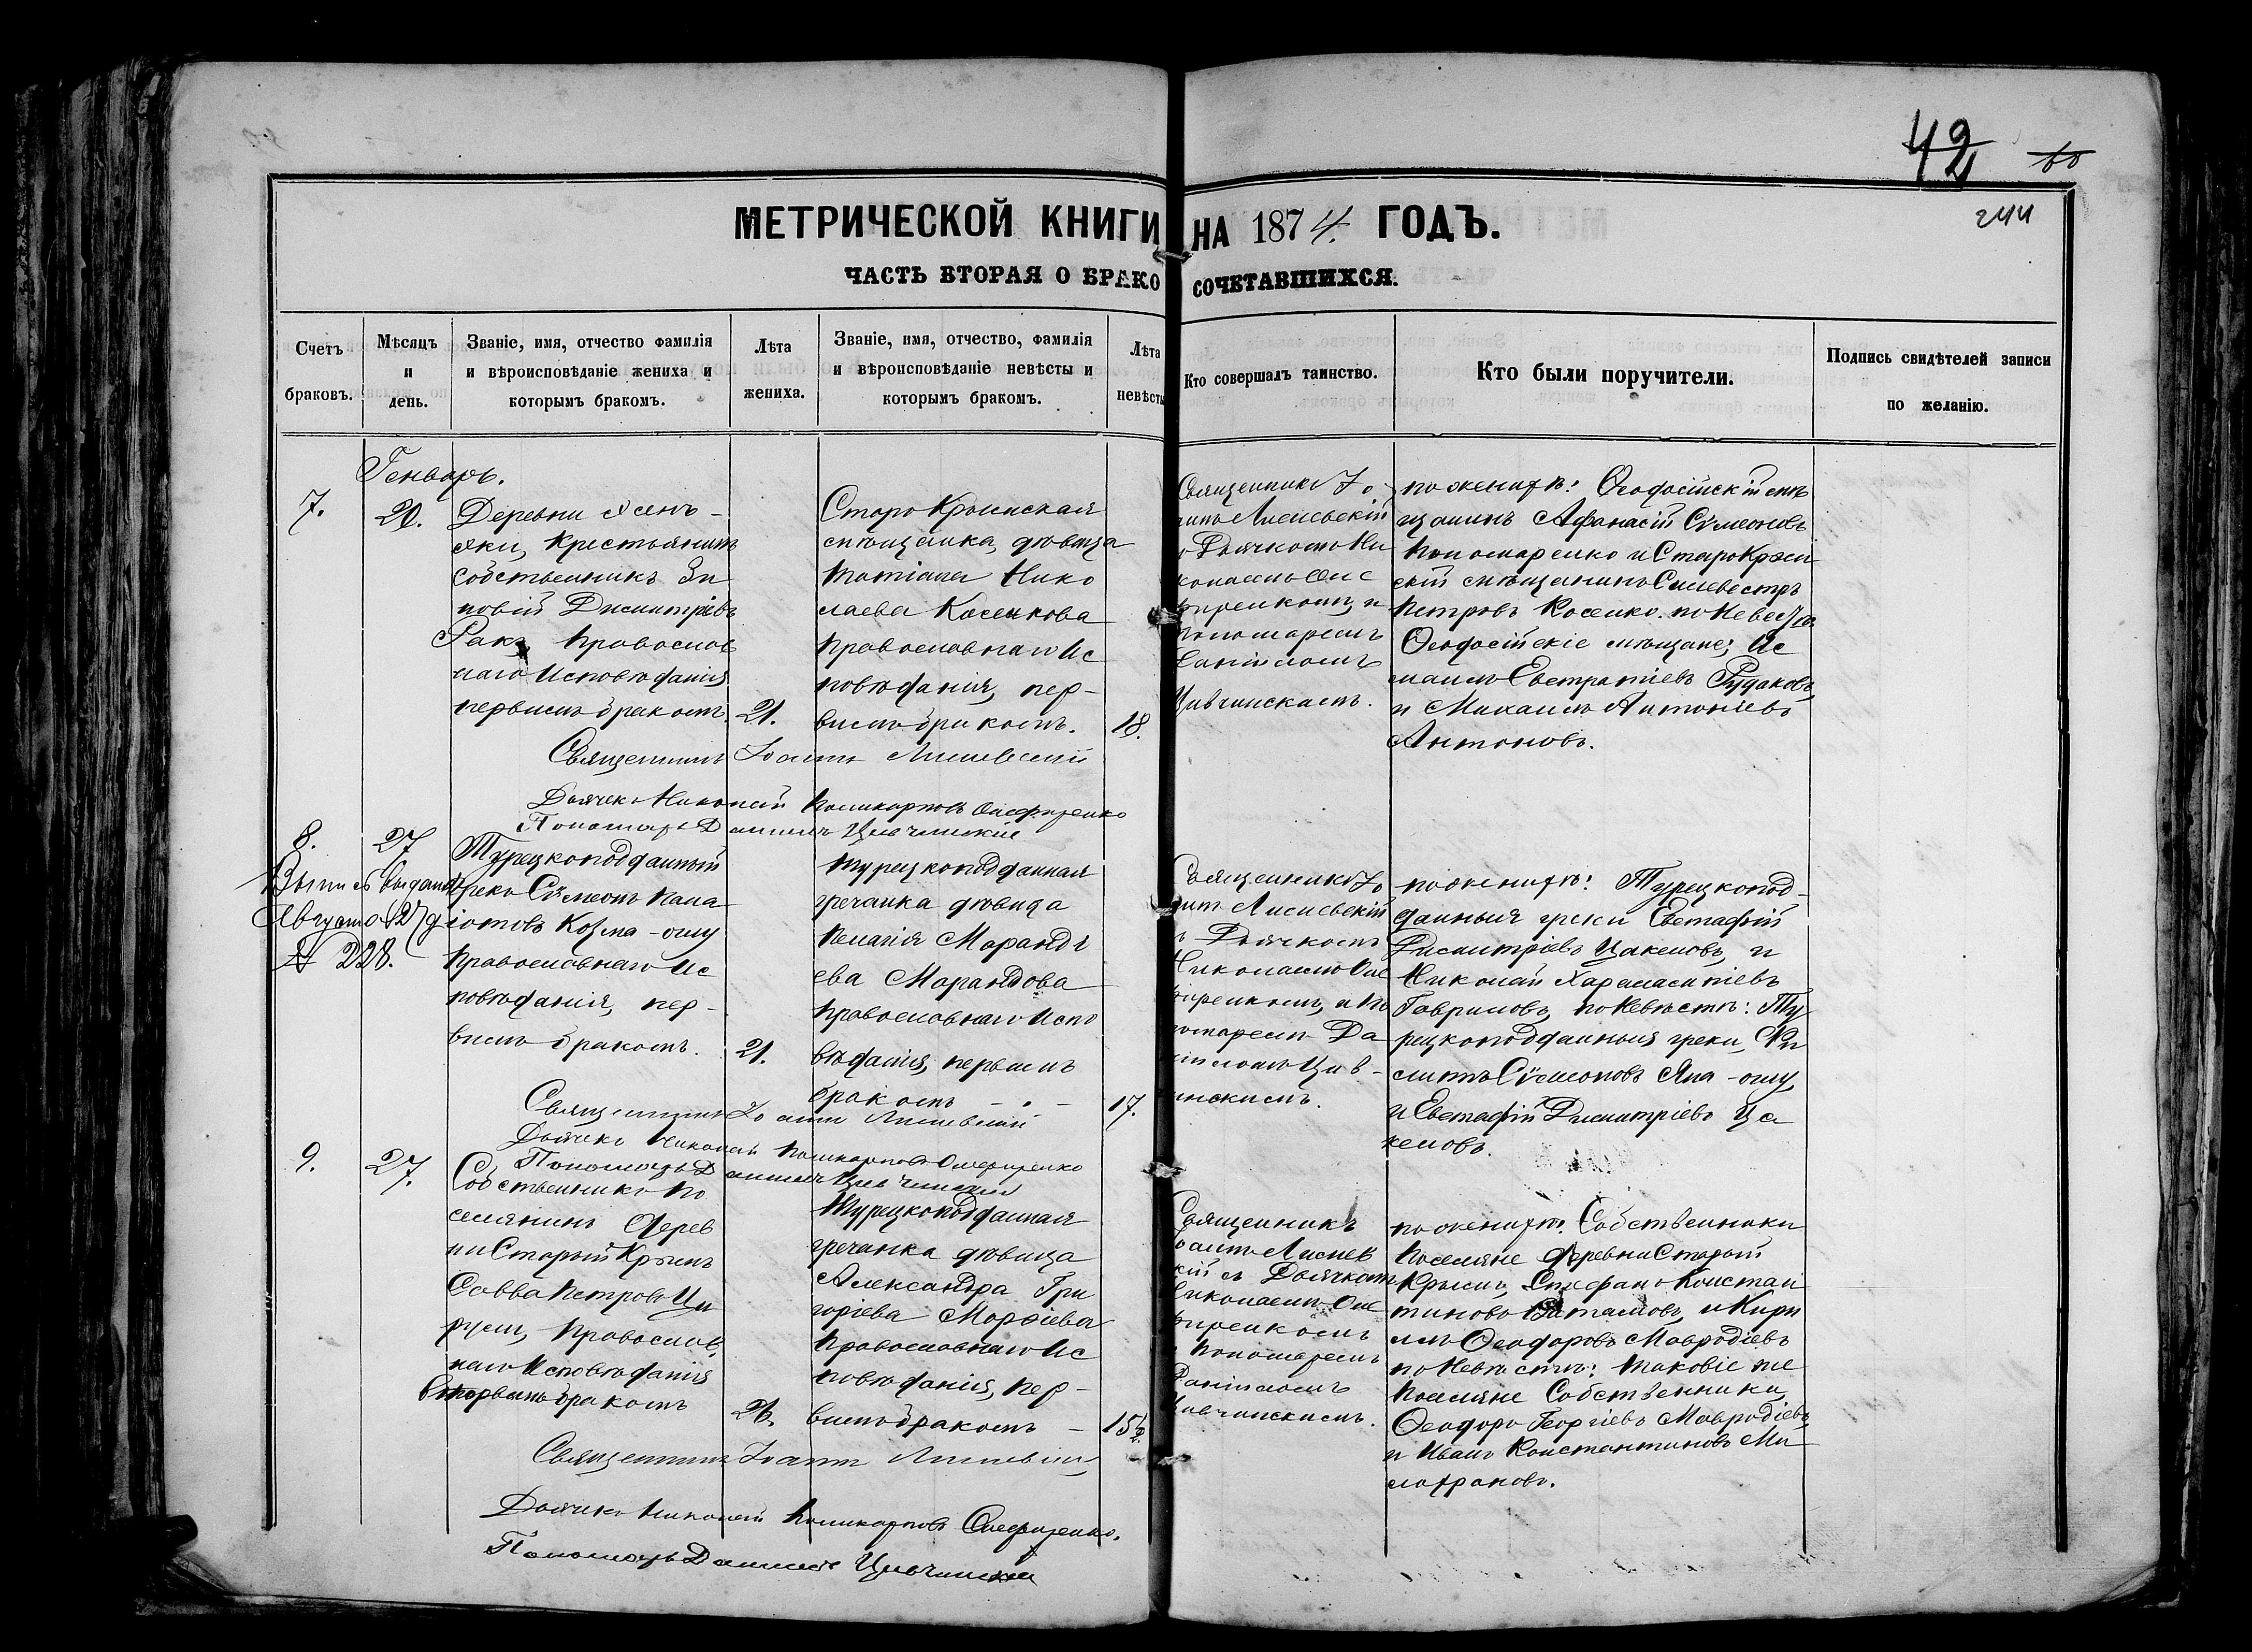 42 60
244
МЕТРИЧЕСКОЙ КНИГИ НА 1874. ГОДЪ.
ЧАСТЬ ВТОРАЯ О БРАКОСОЧЕТАВШИХСЯ.
Счетъ браковъ.
Мѣсяцъ и день.
Званіе, имя, отчество фамилія
и вѣроисповѣданіе жениха и
которымъ бракомъ.
Лѣта
жениха.
Званіе, имя, отчество, фамилія
и вѣроисповѣданіе невѣсты и
которымъ бракомъ.
Лѣта
невѣсты
Кто совершалъ таинство.
Кто были поручители.
Подпись свидѣтелей записи
по желанію.
Генварь.
7.
20.
Деревни
яки, крестьянинъ
собственникъ Зи
новій Димитріевъ
Ракъ, православ
наго исповѣданія
первымъ бракомъ
21.
Старокрымская
мѣщанка, дѣвица
Татіана Нико
лаева Косенкова
православнаго ис
повѣданія, пер-
вымъ бракомъ.
18.
Священникъ Іо
аннъ Лисневскій
Дьячкомъ Ни
колаемъ
и
Пономаремъ
Даніиломъ
Цивчинскимъ.
по женихѣ: Ѳеодосійскій мѣ
щанинъ Афанасій Сѵмеоновъ
Пономаренко и Старокрым
скій мѣщанинъ Сильвестръ
Петровъ Косенко. по невестѣ
Ѳеодосійскіе мѣщане; Ис
маилъ Евстратіевъ Рудаковъ,
и Михаилъ Антоніевъ
Антоновъ.
Священникъ Іоаннъ Лисневскій
Дьячекъ Николай Поликарповъ
Пономарь Даниилъ Цивчинскій
8.
27
Выпись выдана
Августа 27 д
№ 228.
Турецкоподданный
грекъ Сѵмеонъ Пана
іотовъ Козма-оглу
православнаго ис
повѣданія, пер-
вымъ бракомъ.
21.
Турецкоподданная
гречанка дѣвица
Пелагія Маранді
ева Марандова
православнаго испо
вѣданія, первымъ
бракомъ - . -
17.
Священникъ Іо
аннъ Лисневскій
Дьячкомъ
Николаемъ
и по
номаремъ Да
ніиломъ Цив-
чинскимъ.
по женихѣ: Турецкопод-
данныя греки Евстафій
Димитріевъ Цакеловъ, и
Николай Харалампіевъ
Гавриловъ, по невѣстѣ: Ту
рецкоподданныя греки,
Сѵмеоновъ Япа-оглу,
и Евстафій Димитріевъ Ца
келовъ.
Священникъ Іоаннъ Лисневскій
Дьячекъ Николай Поликарповъ
Пономарь Даниилъ Цивчинскій
9.
27.
Собственникъ по
селянинъ дерев
ни Старый Крымъ
Савва Петровъ Ци
рули, православ
наго исповѣданія
вторымъ бракомъ
26.
Турецкоподданная
гречанка дѣвица
Александра Гри
горіева
православнаго ис
повѣданія, пер-
вымъ бракомъ -
15½
Священникъ
Іоаннъ Лиснев
скій съ Дьячкомъ
Николаемъ
и Пономаремъ
Даніиломъ
Цивчинскимъ.
по женихѣ: Собственники
поселяне деревни Старый
Крымъ, Стефанъ Констан
тиновъ и Кири
лъ Ѳеодоровъ Мавродіевъ
по невѣстѣ: таковіе же
поселяне Собственники,
Ѳеодоръ Георгіевъ Мавродіевъ,
и Иванъ Константиновъ Ми
Священникъ Іоаннъ Лисневскій
Дьячекъ Николай Поликарповъ
Пономарь Даниилъ Цивчинскій